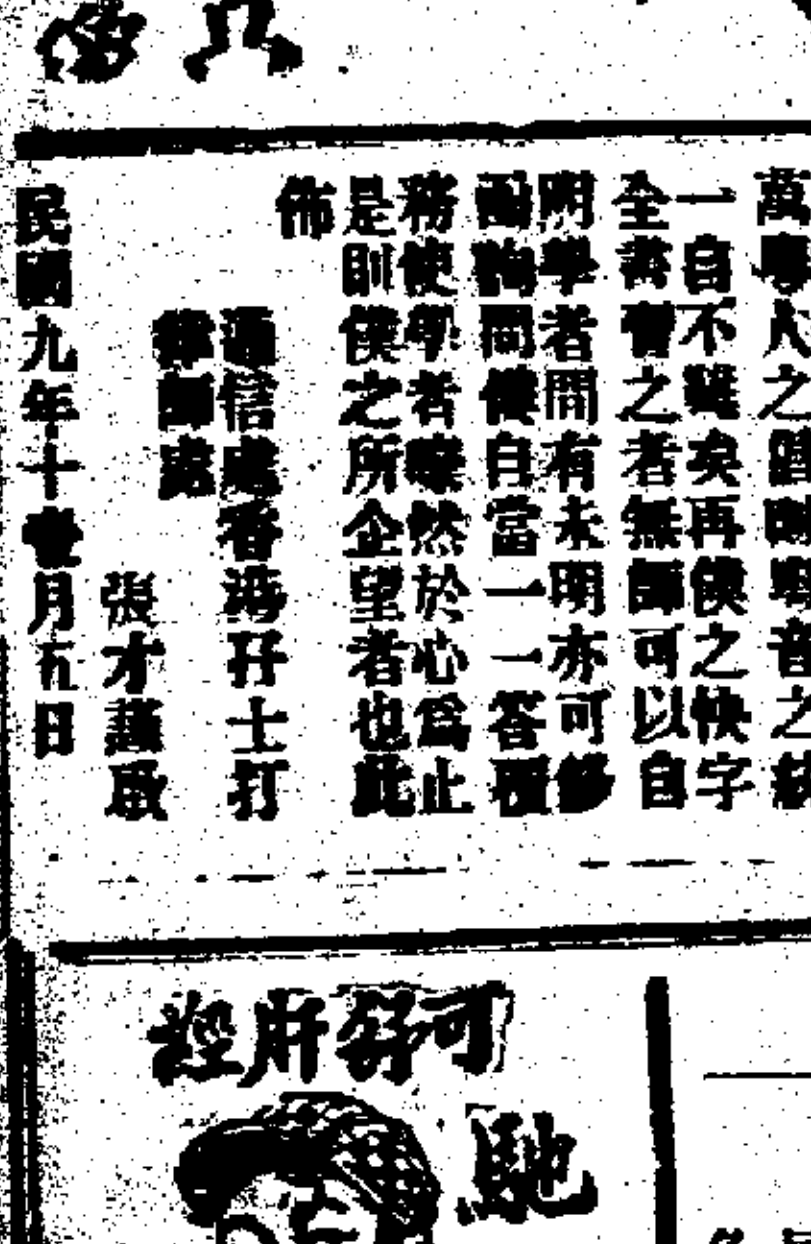 萬粵人之
一自不難矣再僕之快字
全書實之者無師可以自
明學者問有未明亦可修
函詢問僕自當一一答覆
務使學者瞭然於心為止
是則僕之所企望者也此
佈
通信處香港孖士打
律師處
張才謹啟
民國九年十壹月五日
可
馳